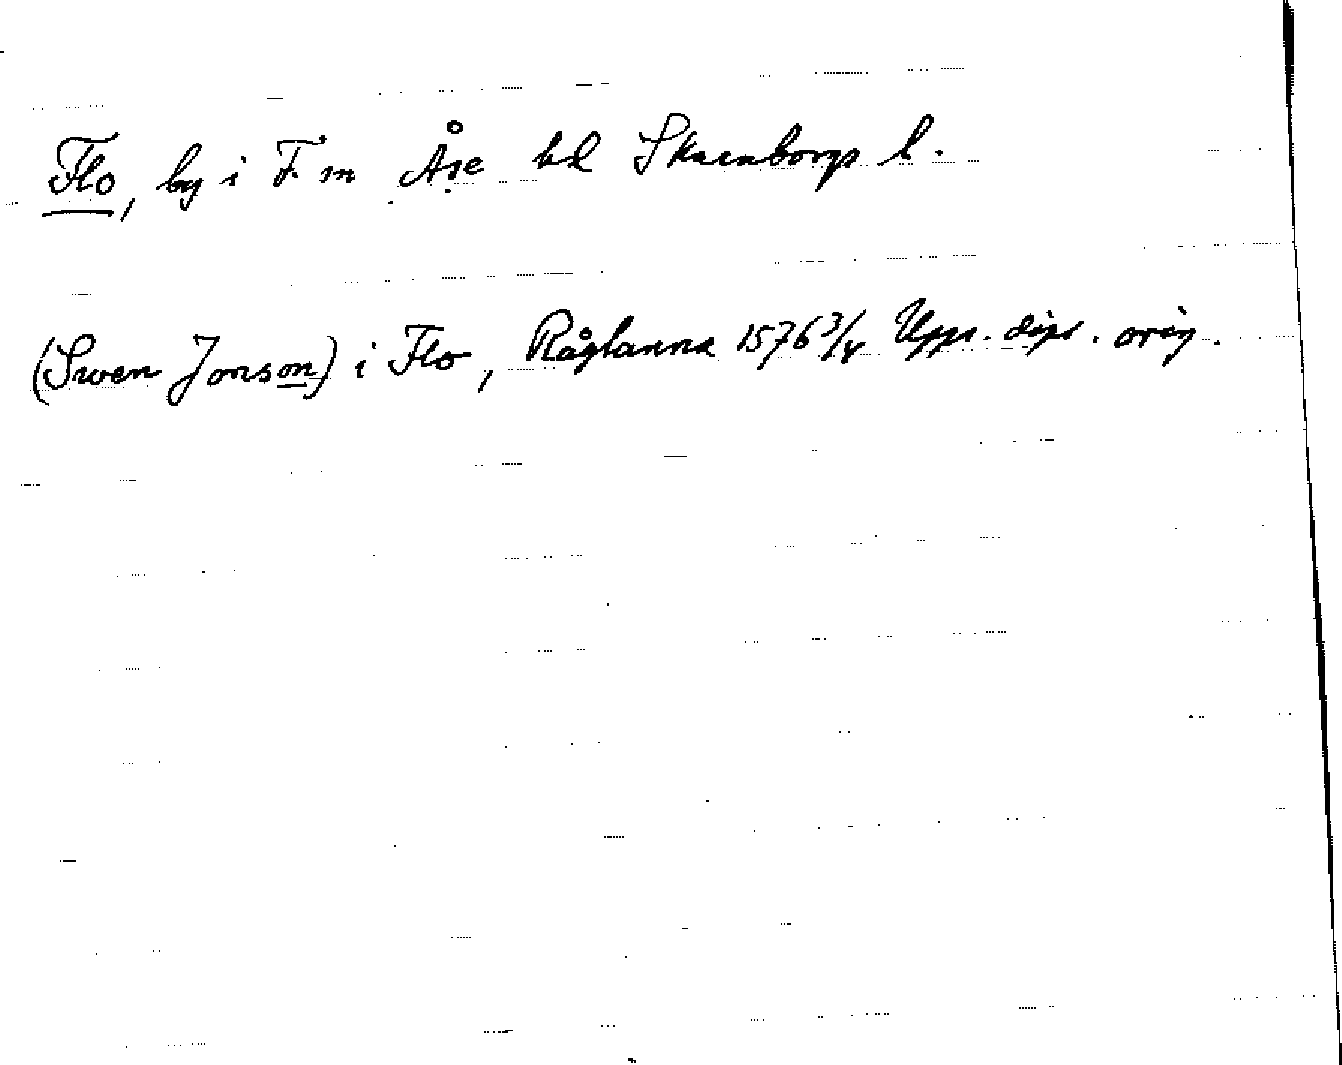 Flo, by i F. sn Åse hd Skaraborgs l.
(Swen Jonson) i Flo, Råglanna 1576 3/4 Upps. dipl. orig.